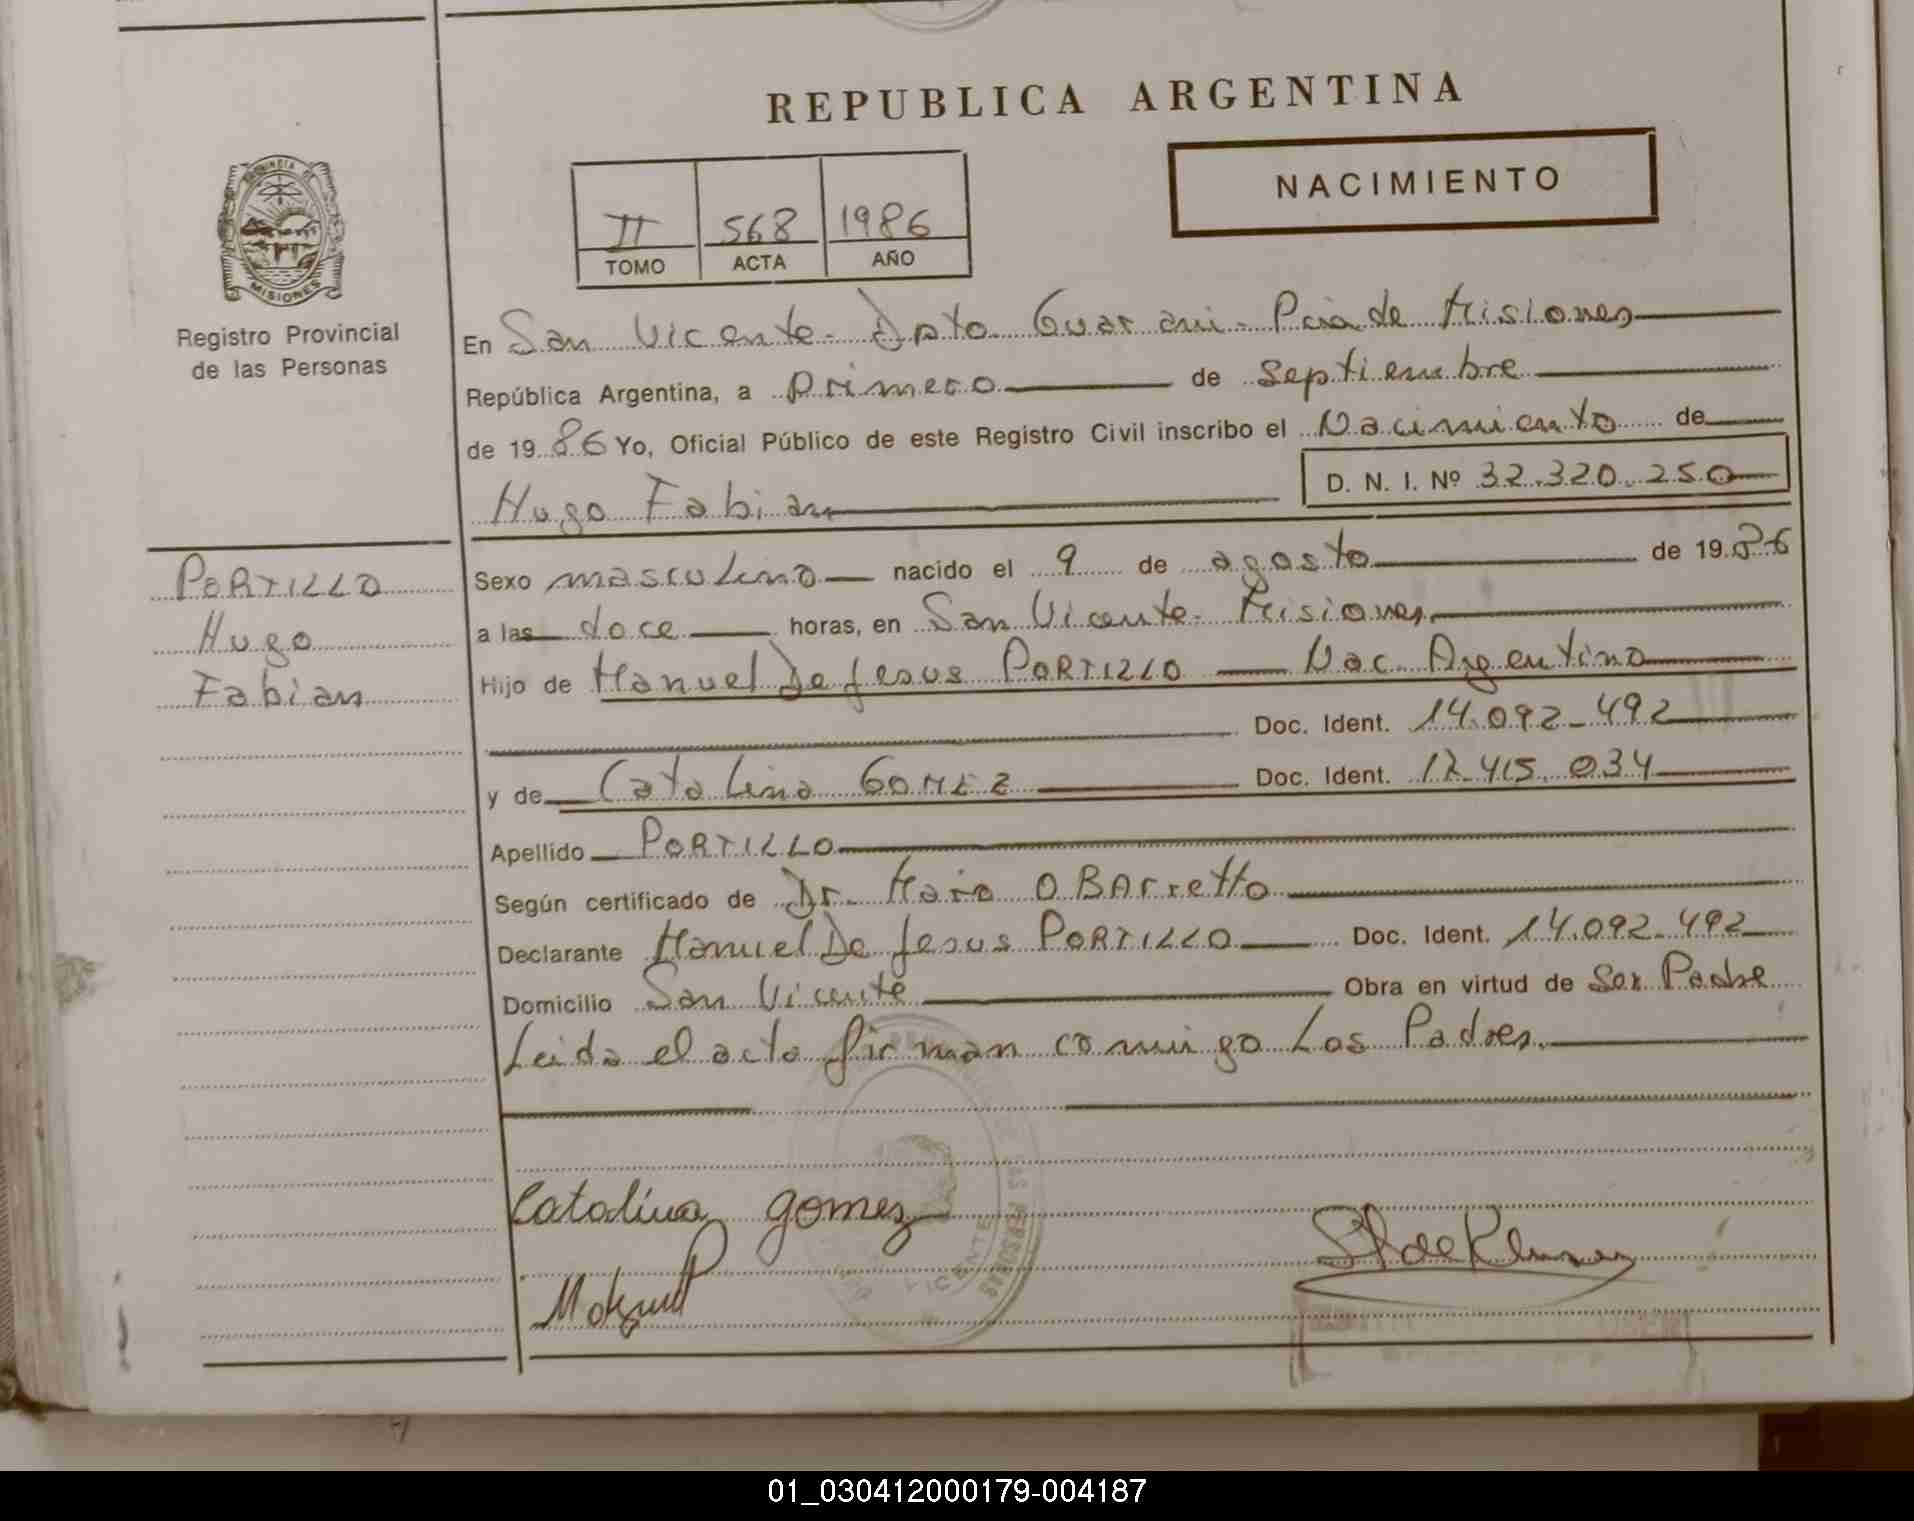 REPUBLICA ARGENTINA
NACIMIENTO
II 568 1986
TOMO ACTA AÑO
PROVINCIA DE
MISIONES
Registro Provincial
de las Personas
En San Vicente - Dpto Guarani - Pcia de Misiones
República Argentina, a primero de septiembre
de 1986 Yo, Oficial Público de este Registro Civil inscribo el Nacimiento de
Hugo Fabian D. N. I. Nº 32.320.250
PORTILLO
Hugo
Fabian
Sexo masculino nacido el 9 de agosto de 1986
a las doce horas, en San Vicente - Misiones
Hijo de Manuel De Jesus PORTILLO Nac. Argentino
Doc. Ident. 14.092-492
y de Catalina GOMEZ Doc. Ident. 12-415.034
Apellido PORTILLO
Según certificado de Dr. Mario O BArretto
Declarante Manuel De Jesus PORTILLO Doc. Ident. 14.092-492
Domicilio San Vicente Obra en virtud de Ser Padre
Leida el acta firman conmigo Los Padres.
Catalina gomez
VICENTE
LAS PERSONAS
01_030412000179-004187